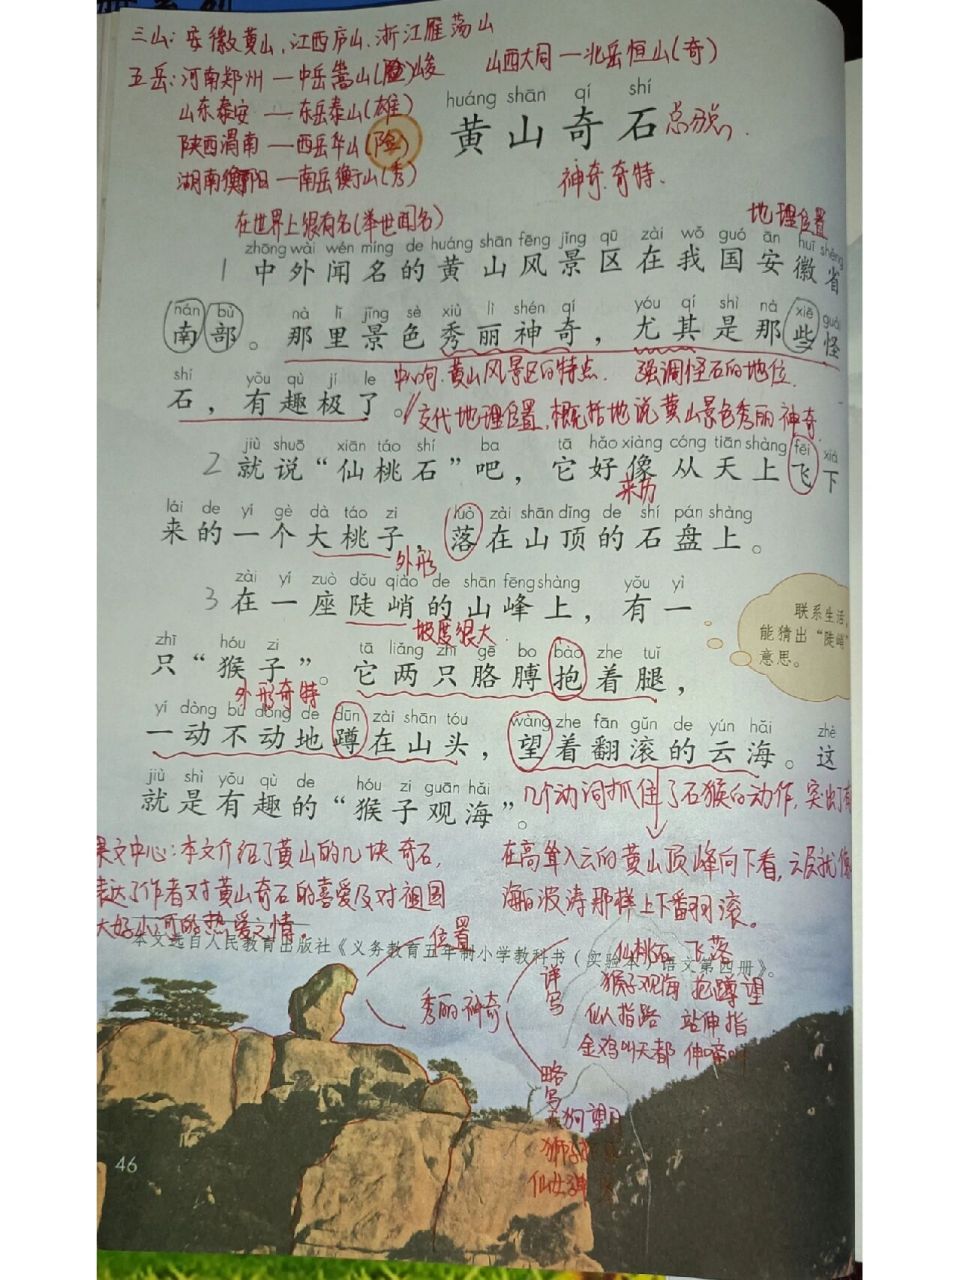 三山：安徽黄山，江西庐山，浙江雁荡山
五岳：河南郑州—中岳嵩山(险)峻 山西大同—北岳恒山(奇)
山东泰安—东岳泰山(雄)
陕西渭南—西岳华山(险)
湖南衡阳—南岳衡山(秀)
huáng shān qí shí
黄山奇石
神奇.奇特.
在世界上很有名(举世闻名) 地理位置
zhōng wài wén míng de huáng shān fēng jǐng qū zài wǒ guó ān huī shěng
1 中外闻名的黄山风景区在我国安徽省
nán bù nà lǐ jǐng sè xiù lì shén qí yóu qí shì nà xiē guài
南部。那里景色秀丽神奇，尤其是那些怪
中心句.黄山风景区的特点. 强调怪石的地位.
shí yǒu qù jí le
石，有趣极了。
交代地理位置，概括地说黄山景色秀丽神奇.
jiù shuō xiān táo shí ba tā hǎo xiàng cóng tiān shàng fēi xià
2 就说“仙桃石”吧，它好像从天上飞下
来历
lái de yí gè dà táo zi luò zài shān dǐng de shí pán shàng
来的一个大桃子落在山顶的石盘上。
外形
zài yí zuò dǒu qiào de shān fēng shàng yǒu yì
3 在一座陡峭的山峰上，有一
坡度很大.
联系生活，
能猜出“陡峭”
意思。
zhī hóu zi tā liǎng zhī gē bo bào zhe tuǐ
只“猴子”。它两只胳膊抱着腿，
外形奇特
yí dòng bú dòng de dūn zài shān tóu wàng zhe fān gǔn de yún hǎi zhè
一动不动地蹲在山头，望着翻滚的云海。这
jiù shì yǒu qù de hóu zi guān hǎi
就是有趣的“猴子观海”。
几个动词抓住了石猴的动作，突出了
课文中心：本文介绍了黄山的几块奇石，
表达了作者对黄山奇石的喜爱及对祖国
大好山河的热爱之情。
在高耸入云的黄山顶峰向下看，云层就像
海的波涛那样上下翻滚。
本文选自人民教育出版社《义务教育五年制小学教科书（实验本）语文第四册》。
位置
秀丽神奇
详写
仙桃石 飞落
猴子观海 抱蹲望
仙人指路 站伸指
金鸡叫天都 伸啼叫
略写
天狗望月
狮子
仙女弹
46